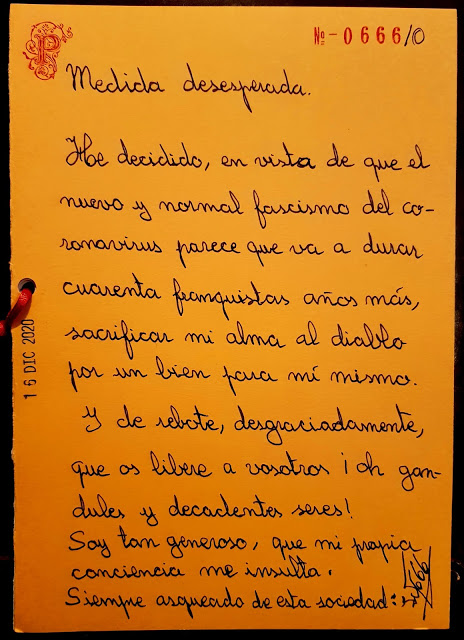 P
Nº-0666/0
Medida desesperada.
He decidido, en vista de que el
nuevo y normal fascismo del co-
ronavirus parece que va a durar
cuarenta franquistas años más,
sacrificar mi alma al diablo
por un bien para mí mismo.
Y de rebote, desgraciadamente,
que os libere a vosotros ¡oh gan-
dules y decadentes seres!
Soy tan generoso, que mi propia
conciencia me insulta.
Siempre asqueado de esta sociedad:
16 DIC 2020